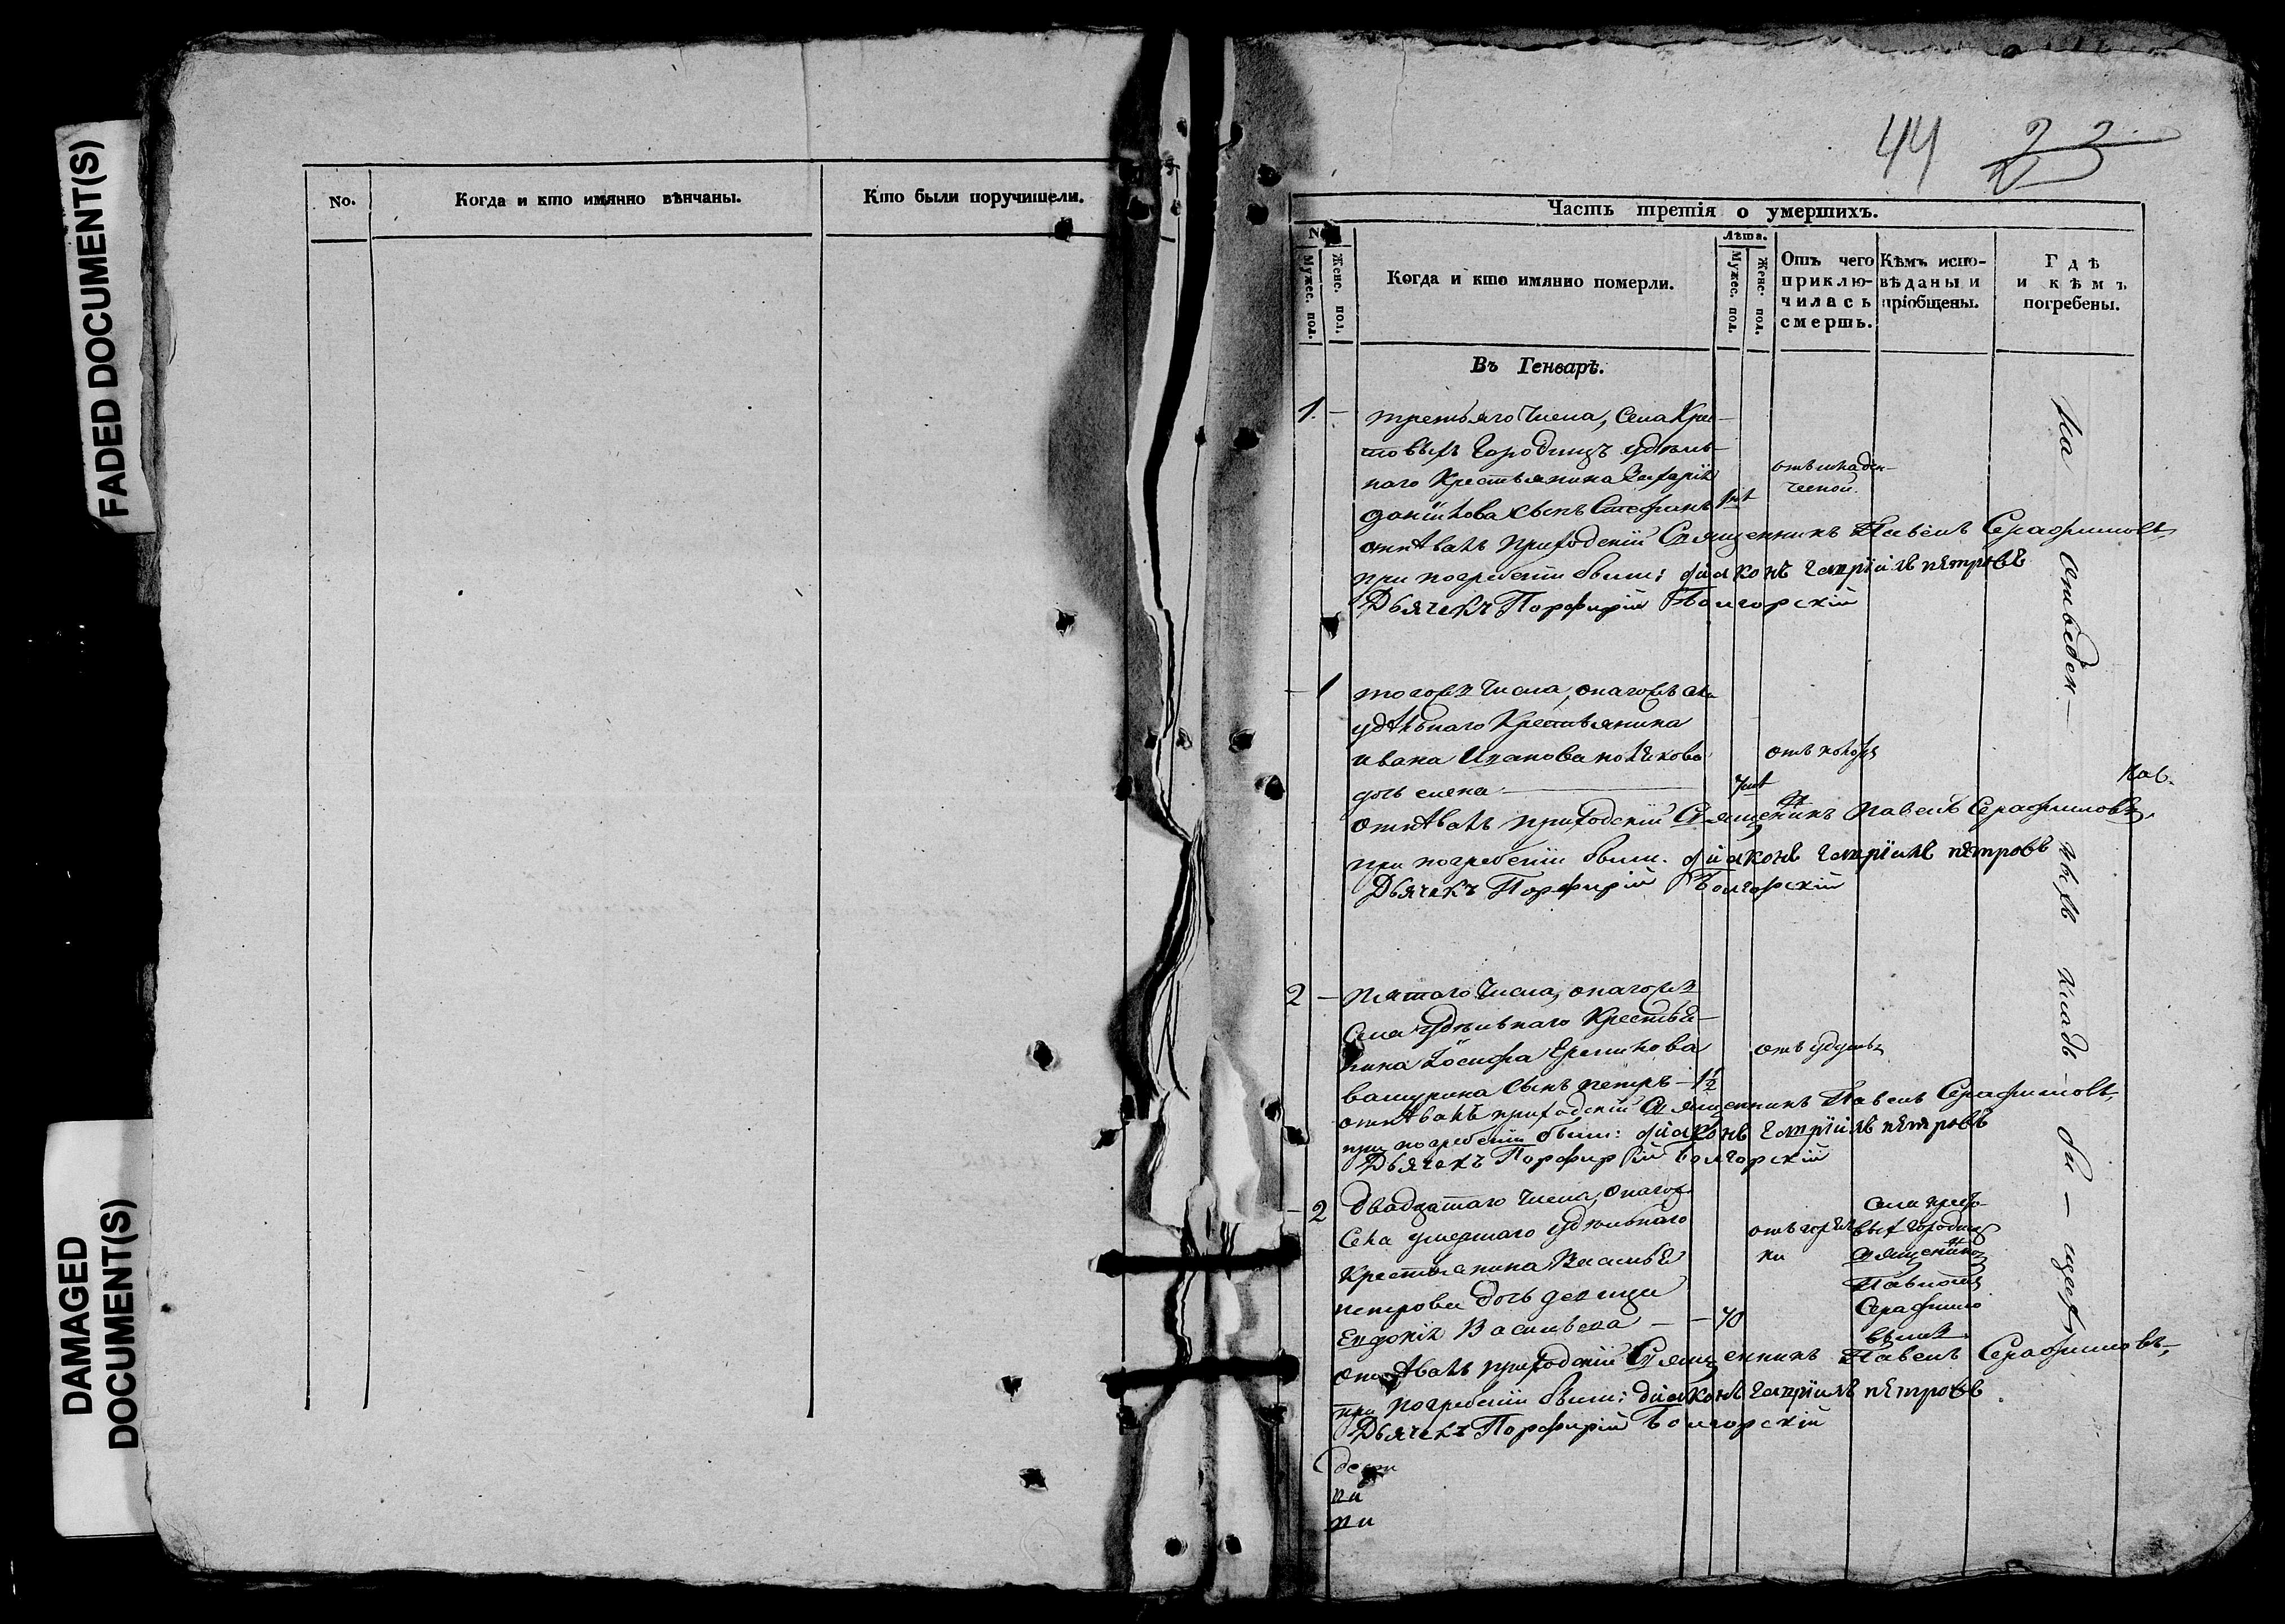 FADED DOCUMENT(S)
DAMAGED
DOCUMENT(S)
No.
Когда и кто имянно вѣнчаны.
Кто были поручители.
44 22
Часть третія о умершихъ.
No.
Мужес. пол.
Женс. пол.
Когда и кто имянно померли.
Лѣта.
Мужес. пол.
Женс. пол.
Отъ чего
приклю-
чилась
смерть.
Кѣмъ испо-
вѣданы и
пріобщены.
Гдѣ
и кѣмъ
погребены.
Въ Генварѣ.
1. — третьяго числа, села
товыхъ Городищъ удѣль
наго Крестьянина Захарія
сынъ Стефанъ
отъ младен-
ческой
отпѣвалъ приходскій Священникъ Павелъ Серафимовъ,
при погребеніи были: діаконъ Гавріилъ Петровъ
Дьячекъ Порфирій Болгорскій
— 1 тогожъ числа, онагожъ
удѣльнаго Крестьянина
Ивана дочь елена
отпѣвалъ приходскій Священникъ Павелъ Серафимовъ,
при погребеніи были. діаконъ Гавріилъ Петровъ
Дьячекъ Порфирій Болгорскій
2 — пятаго числа, онагожъ
села удѣльнаго Крестья-
нина Іосифа
сынъ петръ — 1½
отпѣвалъ приходскій Священникъ Павелъ Серафимовъ,
при погребеніи были: діаконъ Гавріилъ Петровъ
Дьячекъ Порфирій Болгорскій
— 2 двадцатаго числа, онагож
села умершаго удѣльнаго
Крестьянина Василья
петрова дочь девица
Евдокія Васильева — — 70
отъ горяч
ки
села
выхъ городищъ
священникомъ
Павломъ
Серафимо
вымъ
отпѣвалъ приходскій Священникъ Павелъ Серафимовъ,
при погребеніи были: діаконъ Гавріилъ Петровъ
Дьячекъ Порфирій Болгорскій
На отведен —
ныхъ кладь
би — щехъ